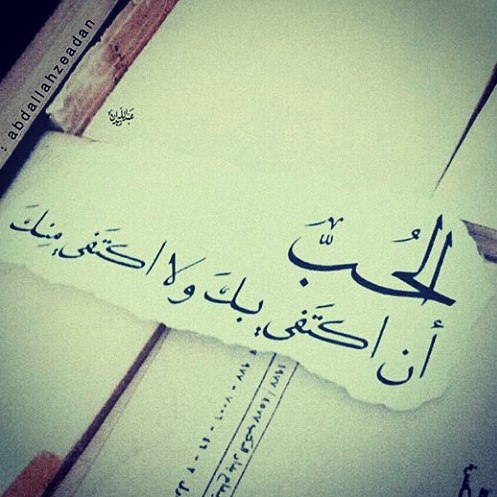 : abdallahzeadan
الحُبَّ
أن اكتَفي بِكَ ولا اكتَفي مِنكَ